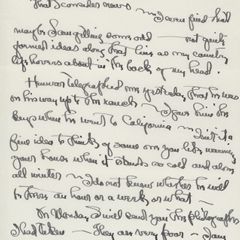 that considers news — I even find that
maybe I am getting some odd — not quite
formed ideas along that line as my country
life hovers about in the back of my head.
telegraphed me yesterday that he was
on his way up to the ranch — I gave him the
keys when he went to California — Just to
fine idea to think of some one you like warming
your house when it stands so cold and alone
all winter — I do not know whether he will
be there an hour or a week or what —
On Monday I will send you the photographs
I had taken — They are very poor — I am